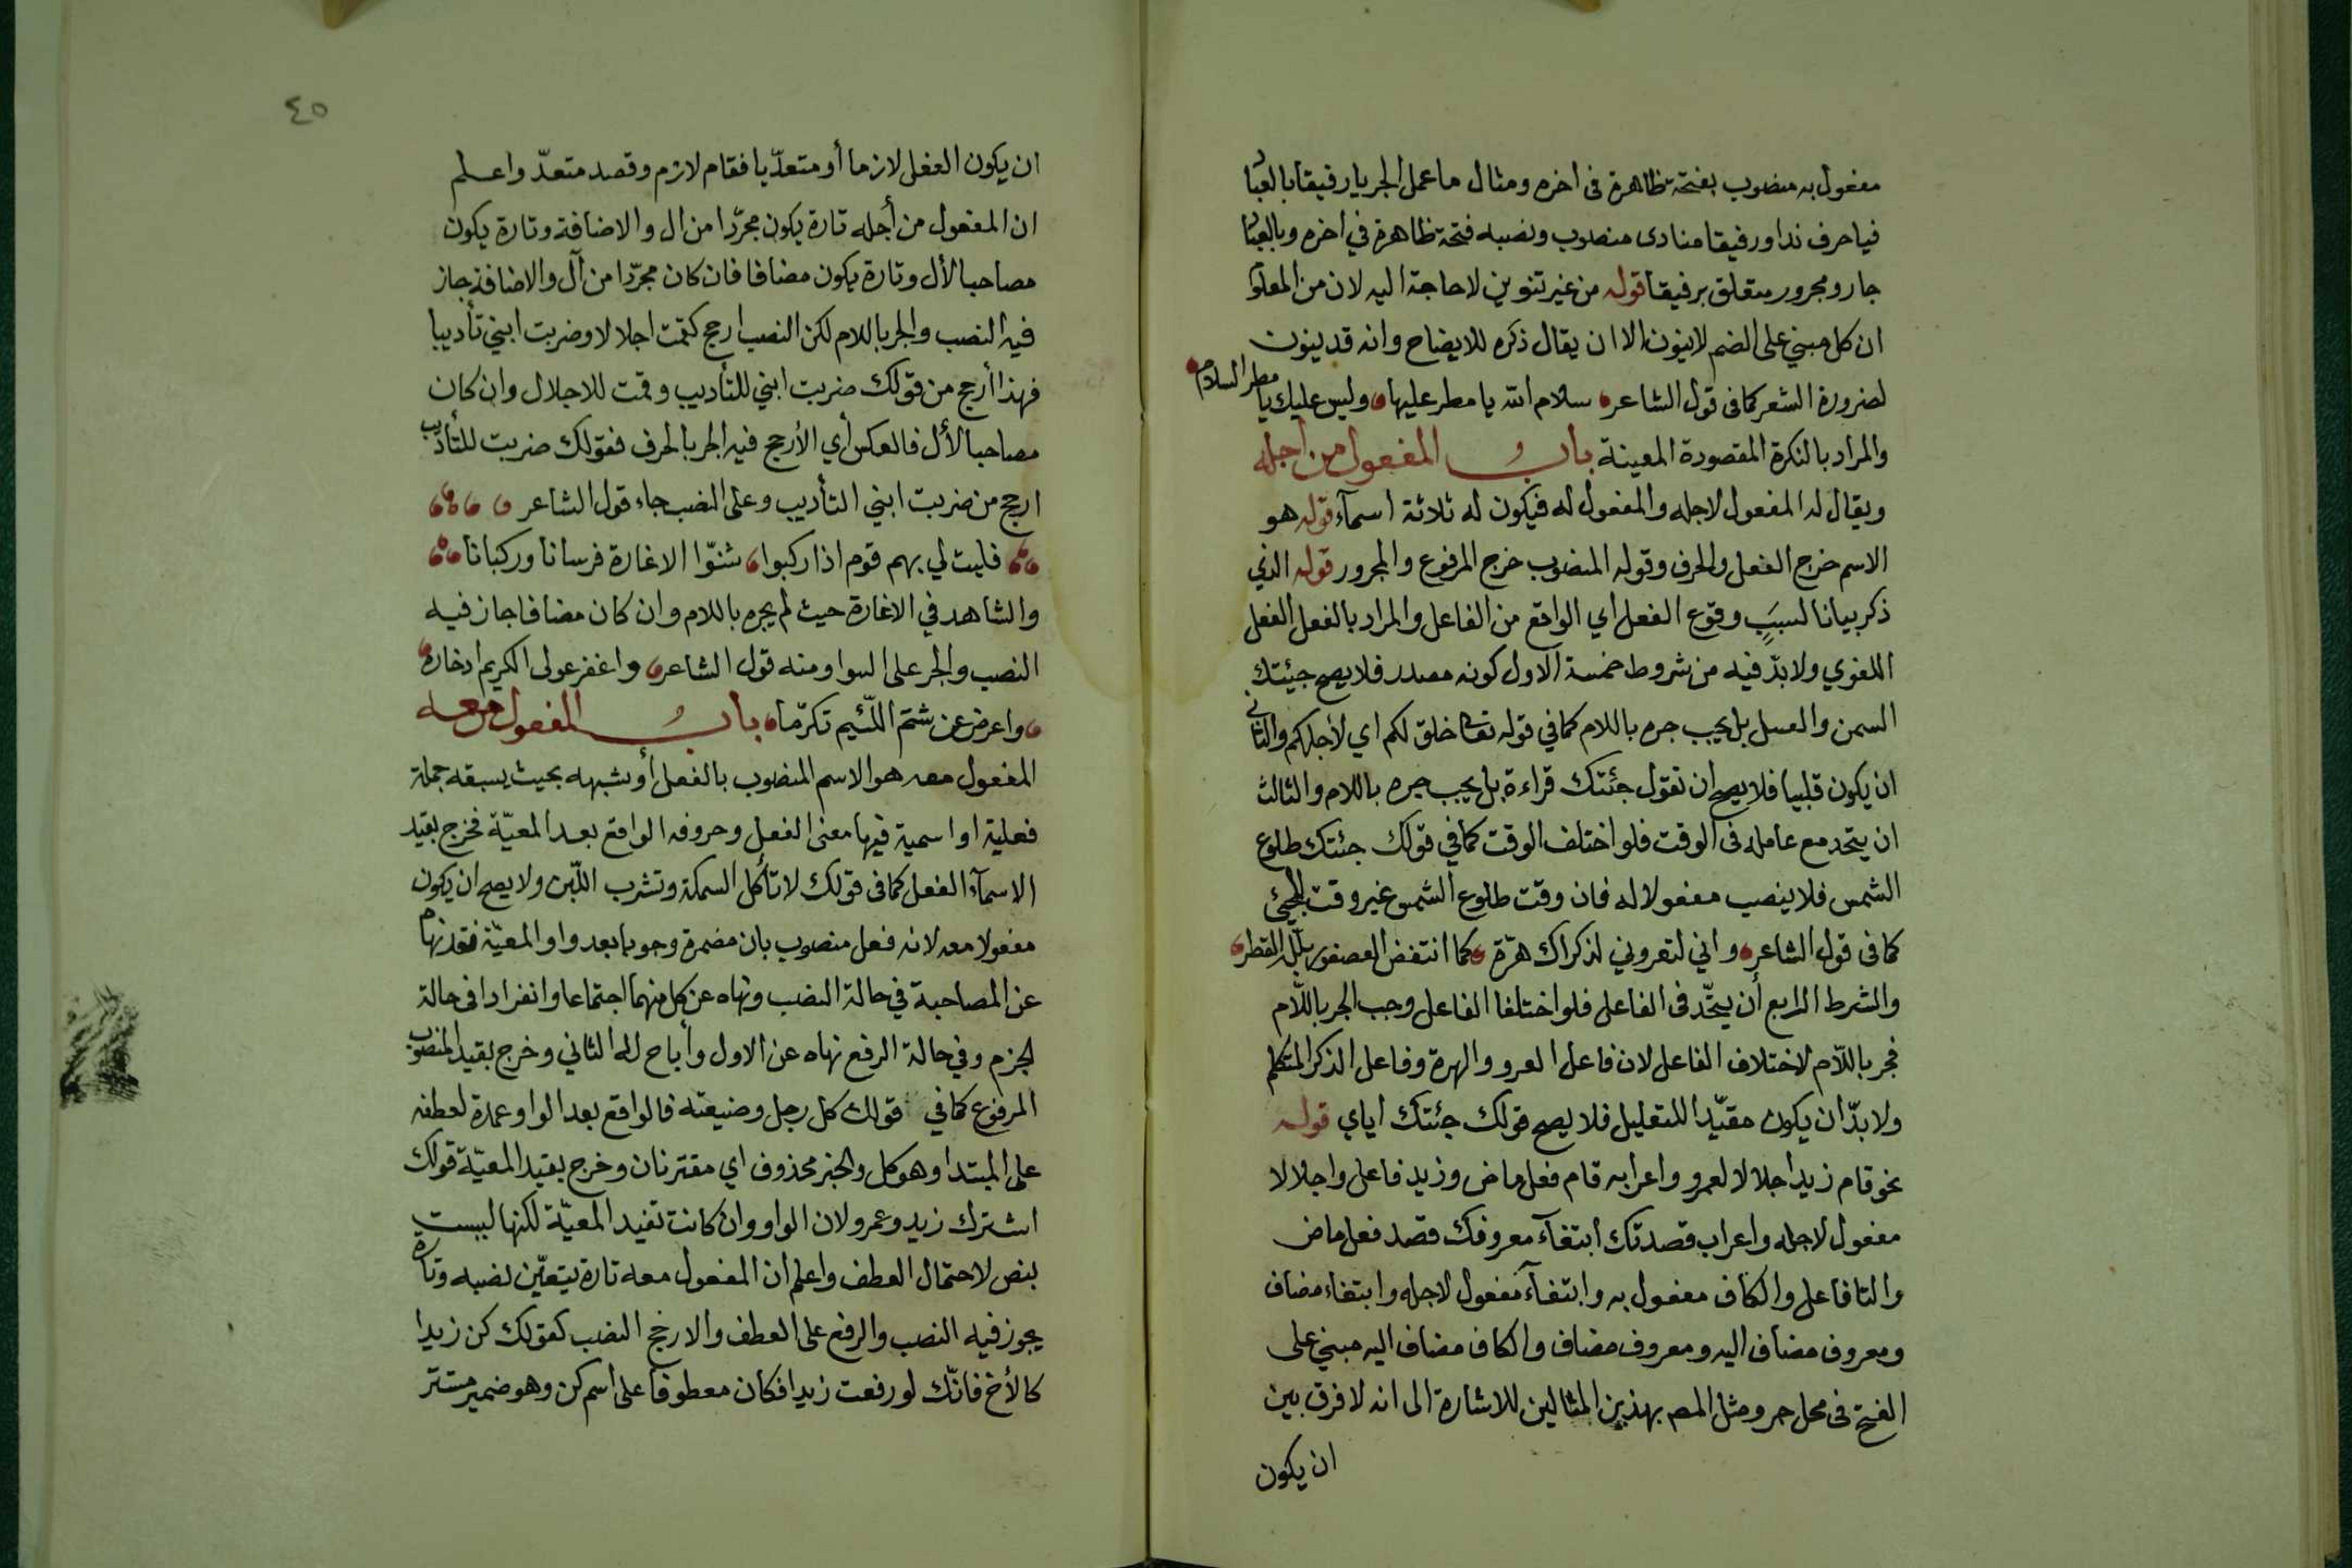 مفعول به منصوب بفتحة ظاهرة فى اخره ومثال ما عمل الجر يا رفيقا بالعباد
فيا حرف ندا ورفيقا منادى منصوب ونصبه فتحة ظاهرة في اخره وبالعباد
جار ومجرور متعلق برفيقا قوله من غير تنوين لا حاجة اليه لان من المعلوم
ان كل مبني على الضم لا ينون الا ان يقال ذكره للايضاح وانه قد ينون
لضرورة الشعر كما فى قول الشاعر سلام الله يا مطر عليها وليس عليك يا مطر السلام
والمراد بالنكرة المقصودة المعينة باب المفعول من اجله
ويقال له المفعول لاجله والمفعول له فيكون له ثلاثة اسمآء قوله هو
الاسم خرج الفعل والحرف وقوله المنصوب خرج المرفوع والمجرور قوله الذي
ذكر بيانا لسبب وقوع الفعل اي الواقع من الفاعل والمراد بالفعل الفعل
اللغوي ولا بدّ فيه من شروط خمسة الاول كونه مصدر فلا يصح جيئتك
السمن والعسل بل يجب جره باللام كما في قوله تعا خلق لكم اي لأجلكم والثاني
ان يكون قلبيا فلا يصح ان تقول جئتك قراءة بل يجب جره باللام والثالث
ان يتحد مع عامله فى الوقت فلو اختلف الوقت كما في قولك جئتك طلوع
الشمس فلا ينصب مفعولا له فان وقت طلوع الشمس غير وقت المجئ
كما فى قول الشاعر واني لتعروني لذكراك هزّة كما انتفض العصفور بلّله القطر
والشرط الرابع أن يتحّد فى الفاعل فلو اختلفا الفاعل وجب الجر باللّام
فجر باللّام لاختلاف الفاعل لان فاعل العرو والهزة وفاعل الذكر المتكلم
ولا بدّ ان يكون مقيّدا للتعليل فلا يصح قولك جئتك اياي قوله
نحو قام زيد اجلالا لعمرو واعرابه قام فعل ماض وزيد فاعل واجلالا
مفعول لاجله واعراب قصدتك ابتغآء معروفك قصد فعل ماض
والتا فاعل والكاف مفعول به وابتغآء مفعول لاجله وابتغاء مضاف
ومعروف مضاف اليه ومعروف مضاف والكاف مضاف اليه مبني على
الفتح فى محل جر ومثل المص بهذين المثالين للاشارة الى انه لا فرق بين
ان يكون
٤٥
ان يكون الفعل لازما أو متعدّيا فقام لازم وقصد متعدّ واعلم
ان المفعول من أجله تارة يكون مجرّدا من ال والاضافة وتارة يكون
مصاحبا لأل وتارة يكون مضافا فان كان مجرّدا من آل والاضافة جاز
فيه النصب والجر باللام لكن النصب ارجح كقمت اجلالا وضربت ابني تأديبا
فهذا أرجح من قولك ضربت ابني للتأديب وقمت للاجلال وان كان
مصاحبا لأل فالعكس أي الأرجح فيه الجر بالحرف فقولك ضربت للتأديب
ارجح من ضربت ابني التأديب وعلى النصب جاء قول الشاعر
فليت لي بهم قوم اذا ركبوا شنّوا الاغارة فرسانا وركبانا
والشاهد في الاغارة حيث لم يجره باللام وان كان مضافا جاز فيه
النصب والجر على السوا ومنه قول الشاعر واغفر عولى الكريم ادخاره
واعرض عن شتم اللّئيم تكرّما باب المفعول معه
المفعول معه هو الاسم المنصوب بالفعل أو شبهه بحيث يسبقه جملة
فعلية او اسمية فيها معنى الفعل وحروفه الواقع بعد المعيّة فخرج بقيد
الاسمآء الفعل كما فى قولك لا تأكل السمكة وتشرب اللّبن ولا يصح ان يكون
مفعولا معه لانه فعل منصوب بان مضمرة وجوبا بعد واو المعيّة فقد نهاه
عن المصاحبة في حالة النصب ونهاه عن كل منهما اجتماعا وانفرادا فى حالة
الجزم وفي حالة الرفع نهاه عن الاول وأباح له الثاني وخرج بقيد المنصوب
المرفوع كما في قولك كل رجل وضيعته فالواقع بعد الواو عمدة لعطفه
على المبتدا وهو كل والخبر محذوف اي مقترنان وخرج بقيد المعيّة قولك
اشترك زيد وعمرو لان الواو وان كانت تفيد المعيّة لكنها ليست
بنص لاحتمال العطف واعلم ان المفعول معه تارة يتعيّن نصبه وتارة
يجوز فيه النصب والرفع على العطف والارجح النصب كقولك كن زيدا
كالأخ فانّك لو رفعت زيدا فكان معطوفا على اسم كن وهو ضمير مستتر